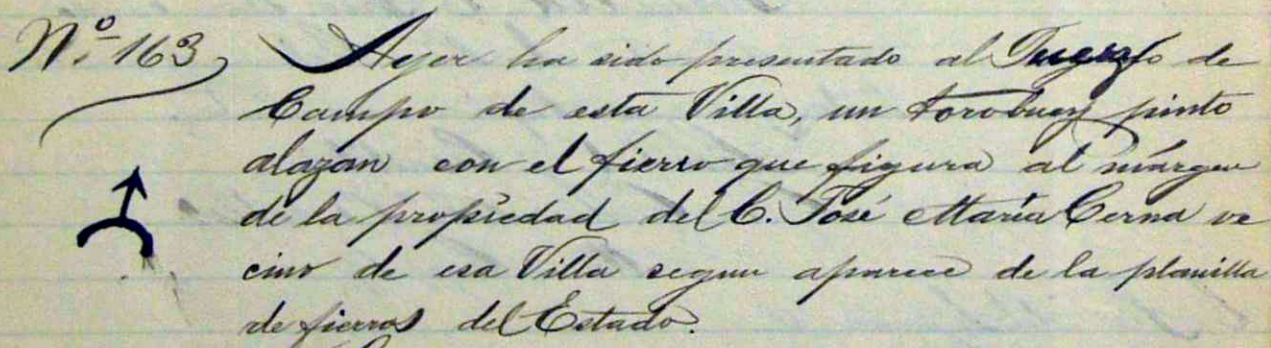 Nº 163 Ayer ha sido presentado al Juzgado de
Campo de esta Villa, un torobuey pinto
alazan con el fierro que figura al márgen
de la propiedad del C. José María Cerna ve
cino de esa Villa segun aparece de la planilla
de fierros del Estado.